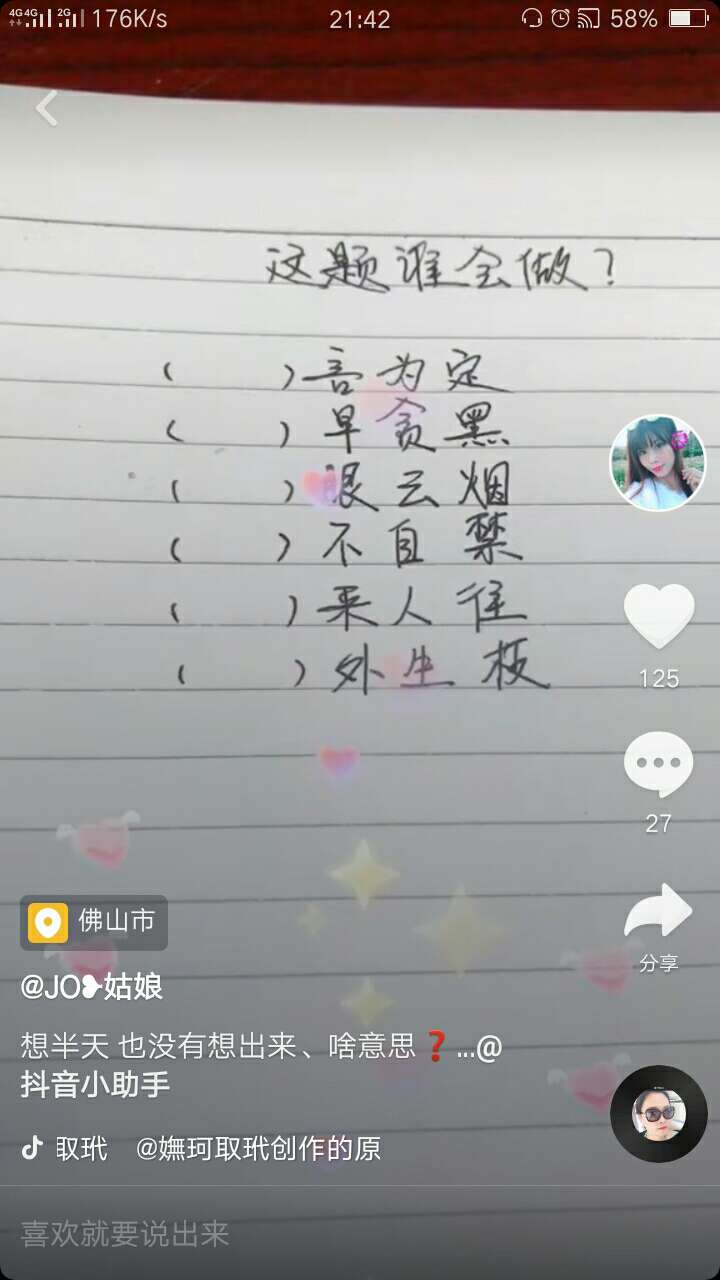 4G 4G 2G 176K/s 21:42 58%
这题谁会做?
( )言为定
( )早贪黑
( )眼云烟
( )不自禁
( )来人往
( )外生枝
125
27
佛山市
分享
@JO❥姑娘
想半天 也没有想出来、啥意思❓...@
抖音小助手
取玳 @嫵珂取玳创作的原
喜欢就要说出来